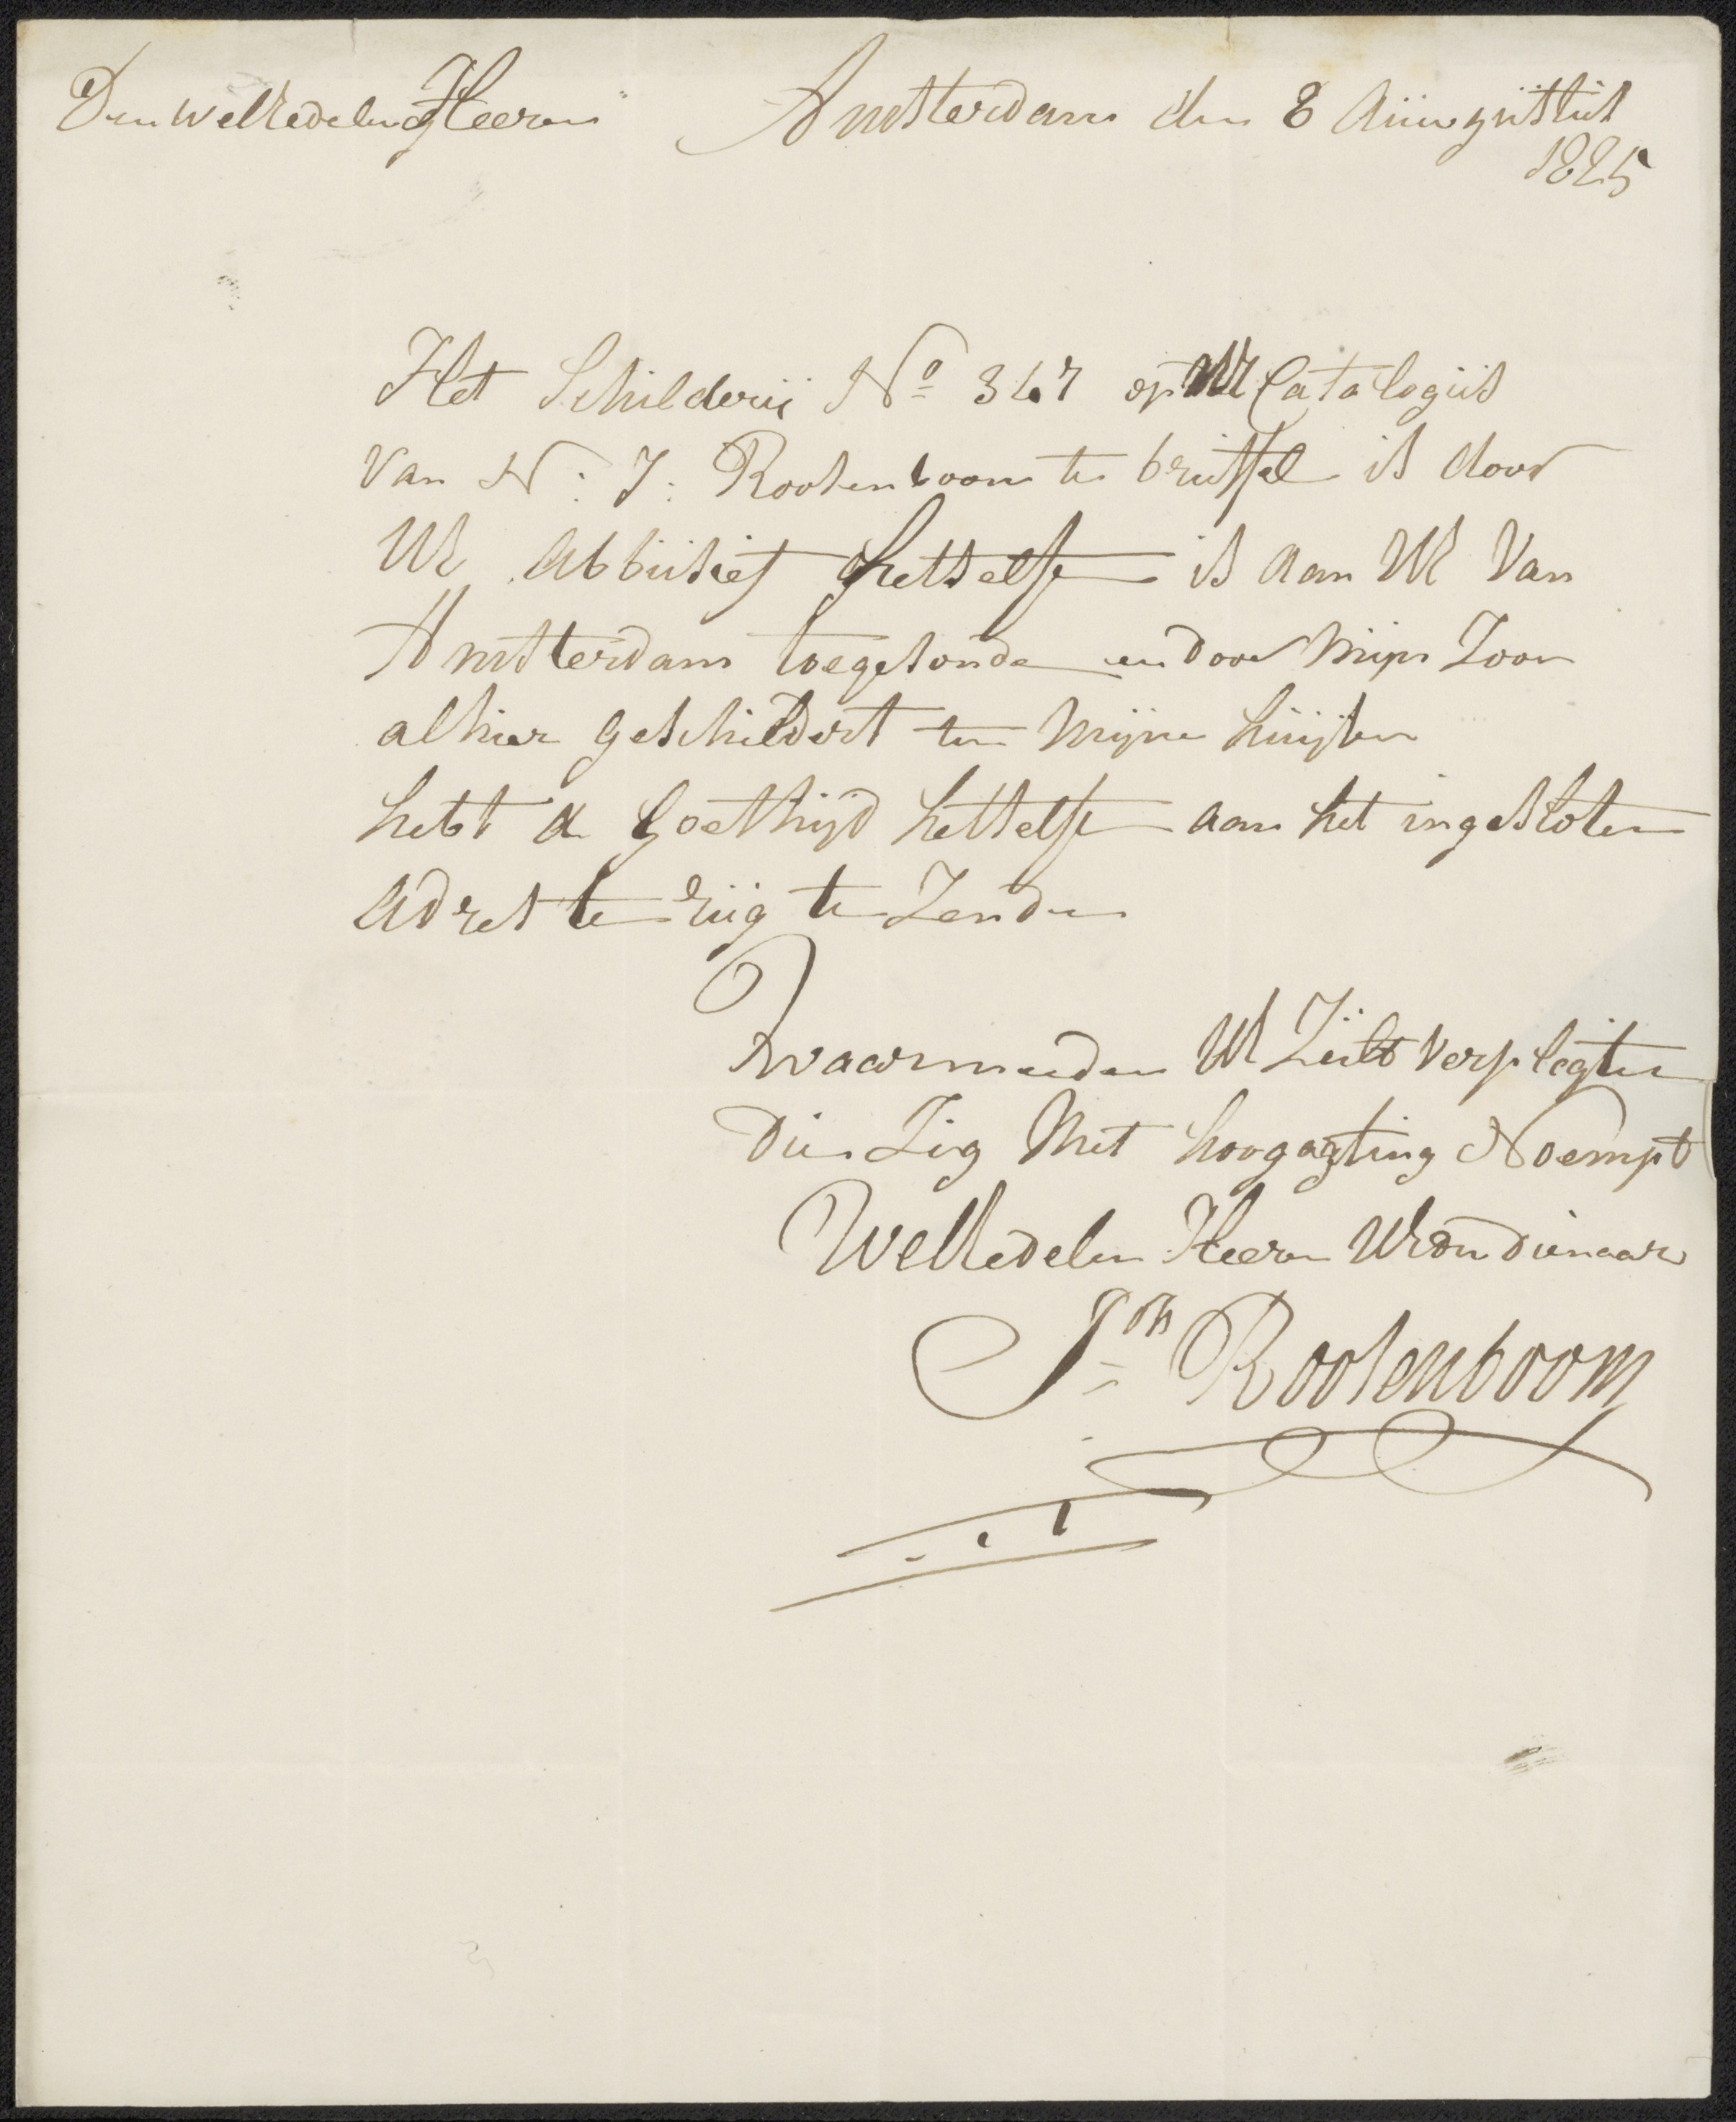 Den welledelen Heeren Amsterdam den 8 Auwgustus
1825
Het Schilderij No 347 op Ul Catalogus
van N: J: Roosenboom te brussel is door
Ul abbusief hetselfe is aan Ul van
Amsterdam toegesonde en door mijn Zoon
alhier geschildert ten mijne huijsen
hebt de goethijd hetselfe aan het ingesloten
adres te rug te Zenden
Waarmeeden Ul Zult verpligten
die Zig met hoogagting Noempt
Welledelen Heeren Ul dienaar
Jon Roosenboom